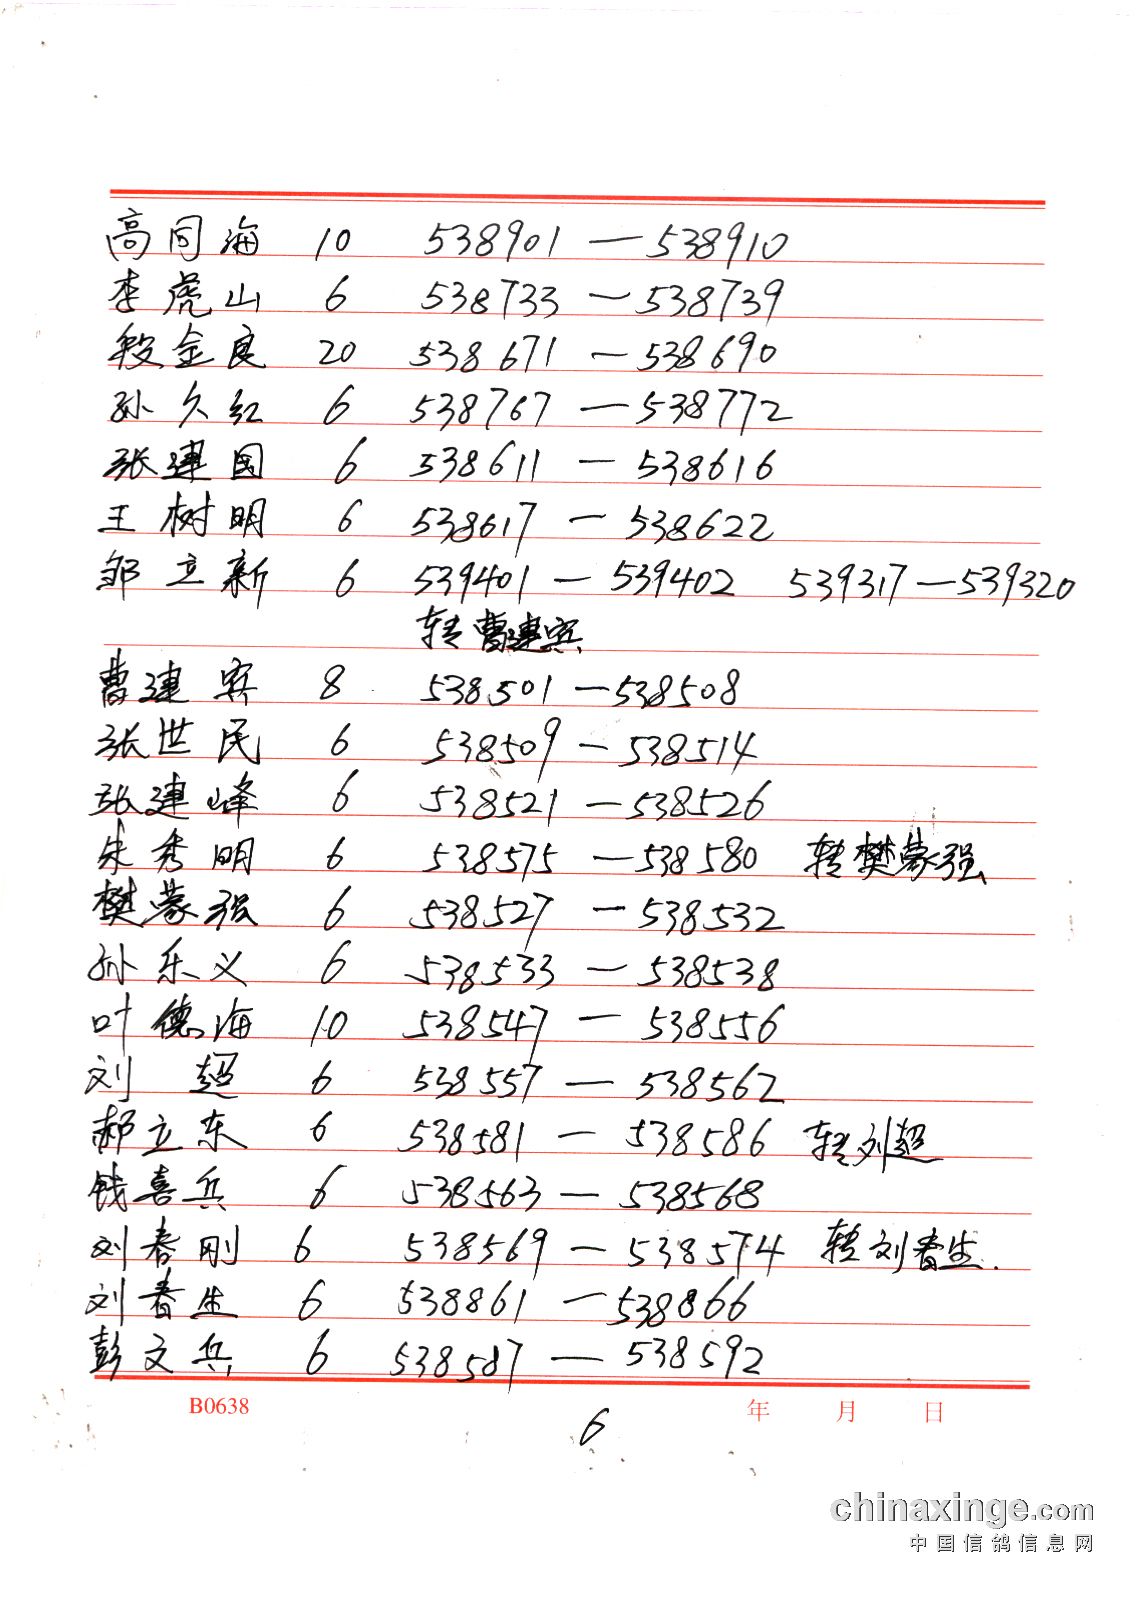 高同海 10 538901 — 538910
李虎山 6 538733 — 538739
段金良 20 538671 — 538690
孙久红 6 538767 — 538772
张建国 6 538611 — 538616
王树明 6 538617 — 538622
邹立新 6 539401 — 539402 539317 — 539320
转曹建宾
曹建宾 8 538501 — 538508
张世民 6 538509 — 538514
张建峰 6 538521 — 538526
朱秀明 6 538575 — 538580 转樊蒙强
樊蒙强 6 538527 — 538532
孙乐义 6 538533 — 538538
叶德海 10 538547 — 538556
刘超 6 538557 — 538562
郝立东 6 538581 — 538586 转刘超
钱喜兵 6 538563 — 538568
刘春刚 6 538569 — 538574 转刘春生.
刘春生 6 538861 — 538866
彭文兵 6 538587 — 538592
B0638 年 月 日
6
chinaxinge.com
中国信鸽信息网